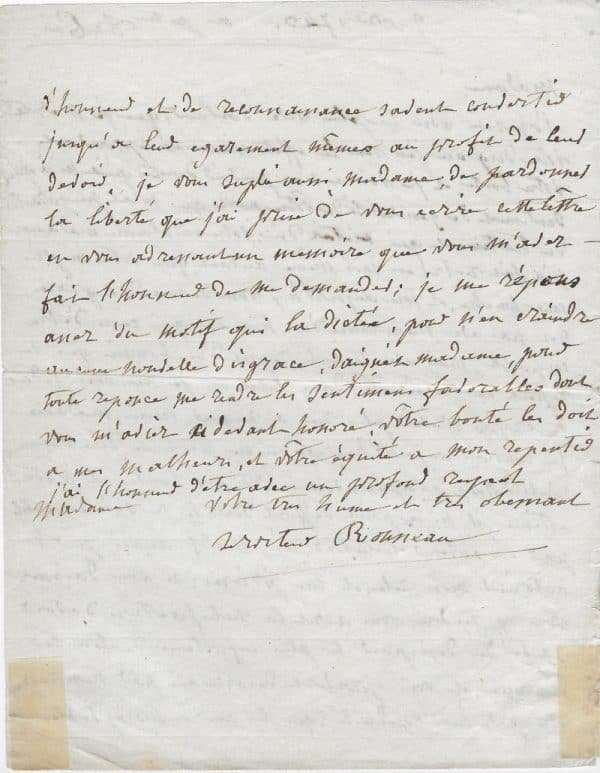 d'honneur et de reconnaissance savent convertir
jusqu'a leur egarement mêmes au profit de leur
devoir, je vous suplie aussi madame, de pardonner
la liberté que j'ai prise de vous ecrire cette lettre
en vous adressant un memoire que vous m'aviez
fait l'honneur de me demander; je me répons
assez du motif qui la dictée, pour n'en craindre
aucune nouvelle disgrace, daignés madame, pour
toute reponce me rendre les sentimens favorables dont
vous m'aviez ci devant honoré, vôtre bonté les doit
a mes malheurs, et vôtre équité a mon repentir
j'ai l'honneur d'être avec un profond respect
Madame votre tres humе et tres obeissant
serviteur Rousseau